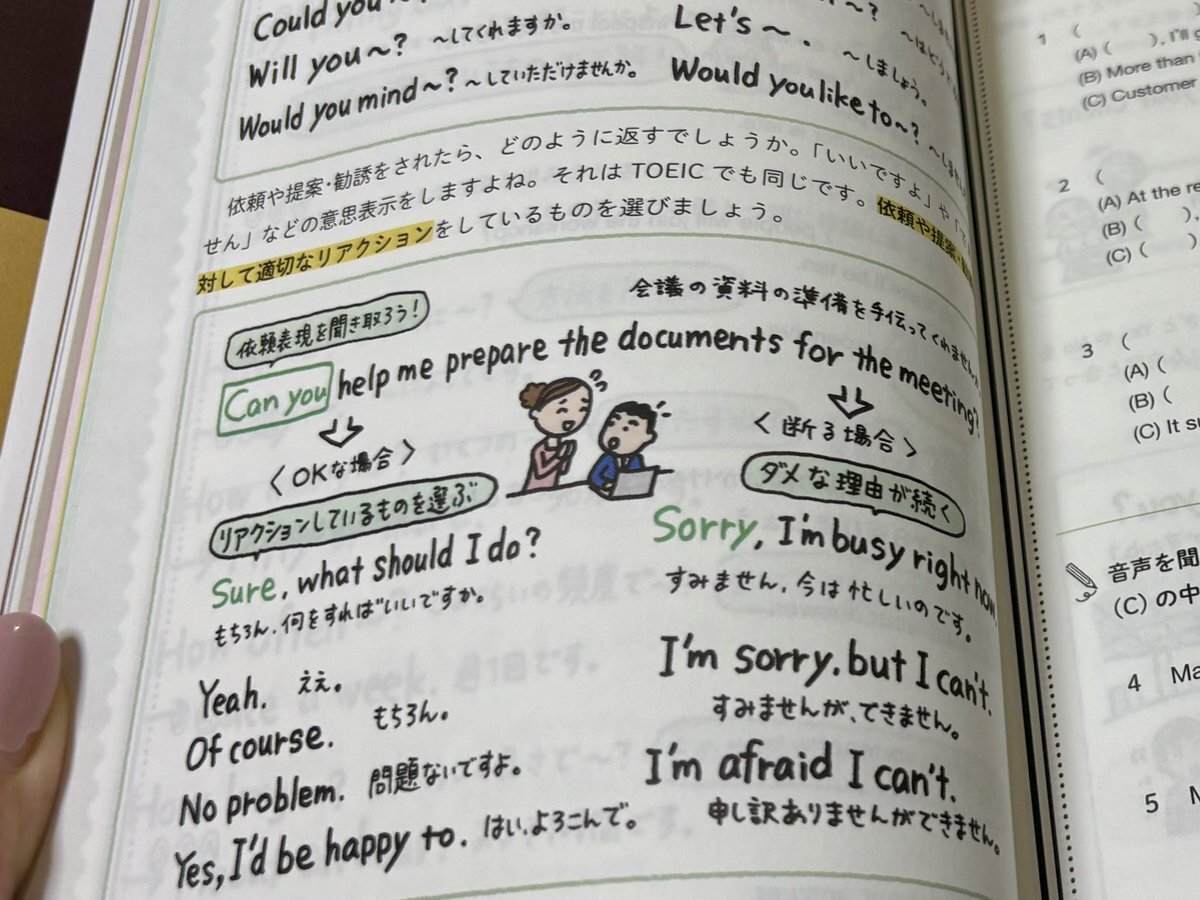 Could you ～?
Will you～? ～してくれますか。
Would you mind～? ～していただけませんか。
～?
Let's～.
～しましょう。
Would you like to～?
依頼や提案・勧誘をされたら、どのように返すでしょうか。「いいですよ」や
せん」などの意思表示をしますよね。それはTOEICでも同じです。依頼や提案・
対して適切なリアクションをしているものを選びましょう。
会議の資料の準備を手伝ってくれません
依頼表現を聞き取ろう!
Can you help me prepare the documents for the meeting?
〈OKな場合〉
リアクションしているものを選ぶ
Sure, what should I do?
もちろん、何をすればいいですか。
Yeah. ええ。
Of course. もちろん。
No problem. 問題ないですよ。
Yes, I'd be happy to. はい、よろこんで。
〈断る場合〉
ダメな理由が続く
Sorry, I'm busy right now.
すみません、今は忙しいのです。
I'm sorry, but I can't.
すみませんが、できません。
I'm afraid I can't.
申し訳ありませんができません。
1 (
(A) ( ), I'll
(B) More than
(C) Customer
2 (
(A) At the
(B) ( ),
(C) ( )
3 (
(A) (
(B) (
(C) It
音声を聞
(C) の中
4
5